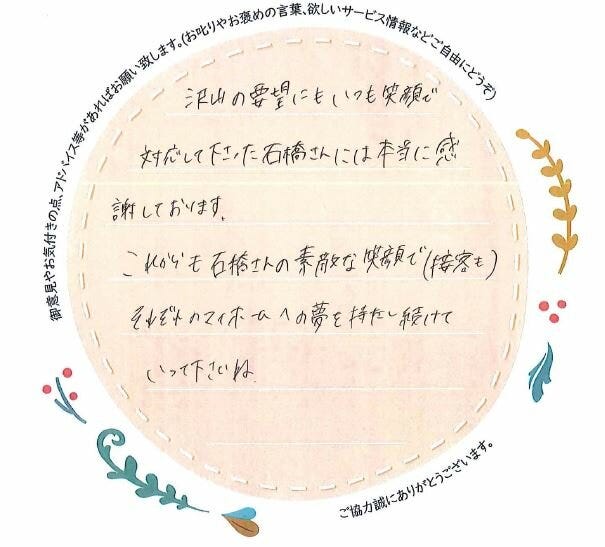 御意見やお気付きの点、アドバイス等があればお願い致します。(お叱りやお褒めの言葉、欲しいサービス情報などご自由にどうぞ)
沢山の要望にもいつも笑顔で
対応して下さった石橋さんには本当に感
謝しております。
これからも石橋さんの素敵な笑顔で(接客も)
それぞれのマイホームへの夢を持たし続けて
いって下さいね
ご協力誠にありがとうございます。